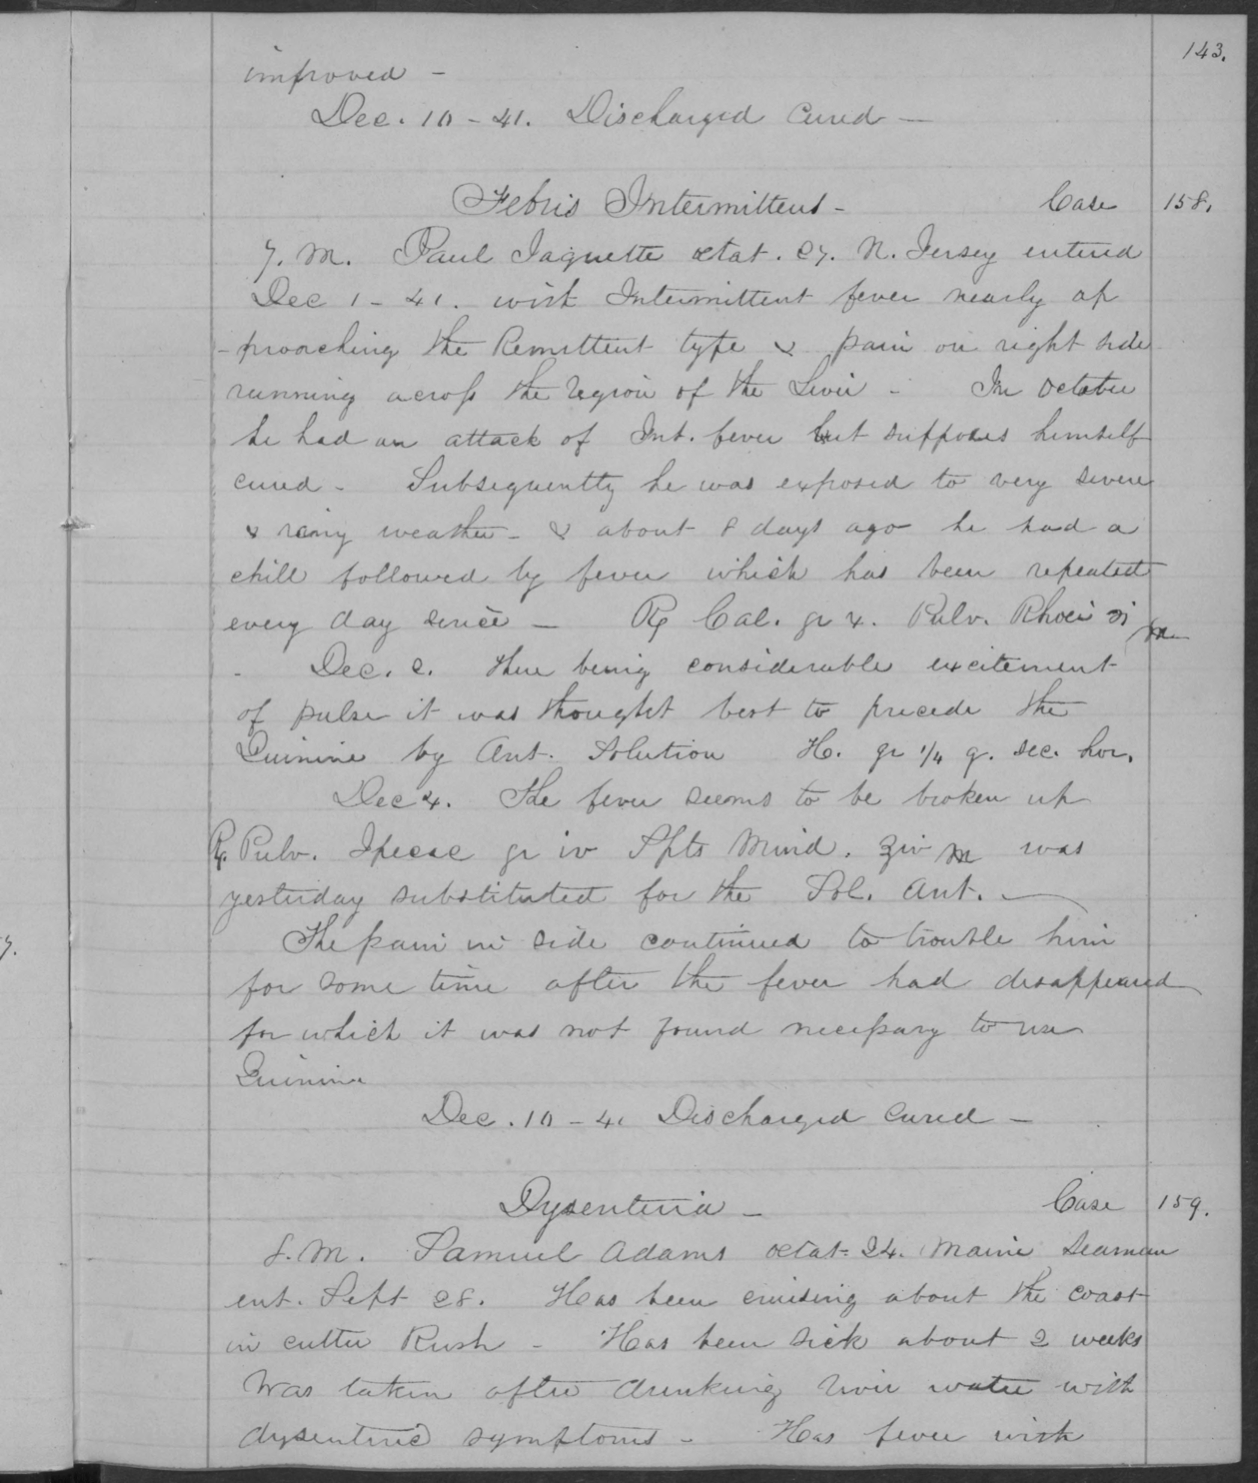 143.
improved -
Dec. 10 - 41. Discharged Cured -
Febris Intermittens - Case 158.
7. M. Paul Jaquette aetat. 27. N. Jersey entered
Dec 1 - 41. with Intermittent fever nearly ap
-proaching the Remittent type & pain on right side
running across the region of the Liver - In October
he had an attack of Int. fever but supposes himself
cured - Subsequently he was exposed to very severe
& rainy weather - & about 8 days ago he had a
chill followed by fever which has been repeated
every day since - Rx Cal. gr x. Pulv. Rhoei ʒi m
- Dec. 2. there being considerable excitement
of pulse it was thought best to precede the
Quinine by Ant. Solution H. gr 1/4 q. sec. hor.
Dec 4. The fever seems to be broken up
Rx. Pulv. Ipecac gr iv Spts Mind. ʒiv m was
yesterday substituted for the Sol. Ant. -
The pain in side continued to trouble him
for some time after the fever had disappeared
for which it was not found necessary to use
Quinine
Dec. 10 - 41 Discharged Cured -
Dysenteria - Case 159.
8. M. Samuel Adams aetat - 24. Maine Seaman
ent. Sept 28. Has been cruising about the coast
in cutter Rush - Has been sick about 2 weeks
Was taken after drinking river water with
dysenteric symptoms - Has fever with
7.